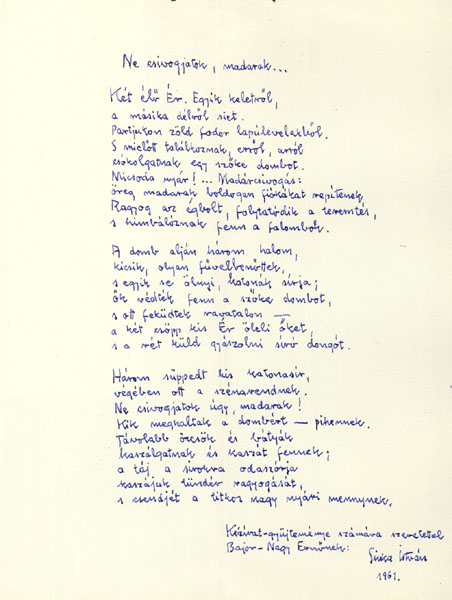 Ne csivogjatok, madarak...
Két élő Ér. Egyik keletről,
a másika délről siet.
Partjukon zöld fodor lapúlevelekből.
S mielőtt találkoznak, erről, arról
csókolgatnak egy szőke dombot.
Micsoda nyár!... Madárcsivogás:
öreg madarak boldogan fiókákat repítenek,
Ragyog az égbolt, folytatódik a teremtés,
s himbálóznak fenn a falombok.
A domb alján három halom,
kicsik, olyan fűvelbenőttek,
s egyik se ölnyi, katonák sírja;
ők védték fenn a szőke dombot,
s ott feküdtek ravatalon —
a két csöpp kis Ér öleli őket,
s a rét küld gyászolni síró dongót.
Három süppedt kis katonasír,
végében ott a szénarendnek.
Ne csivogjatok úgy, madarak!
Kik meghaltak a dombért — pihennek.
Távolabb öcsök és bátyák
kaszálgatnak és kaszát fennek;
a táj a sírokra odaszórja
kaszájuk tündér ragyogását,
s csendjét a titkos nagy nyári mennynek.
Kézirat-gyűjteménye számára szeretettel
Bajor-Nagy Ernőnek: Sinka István
1961.